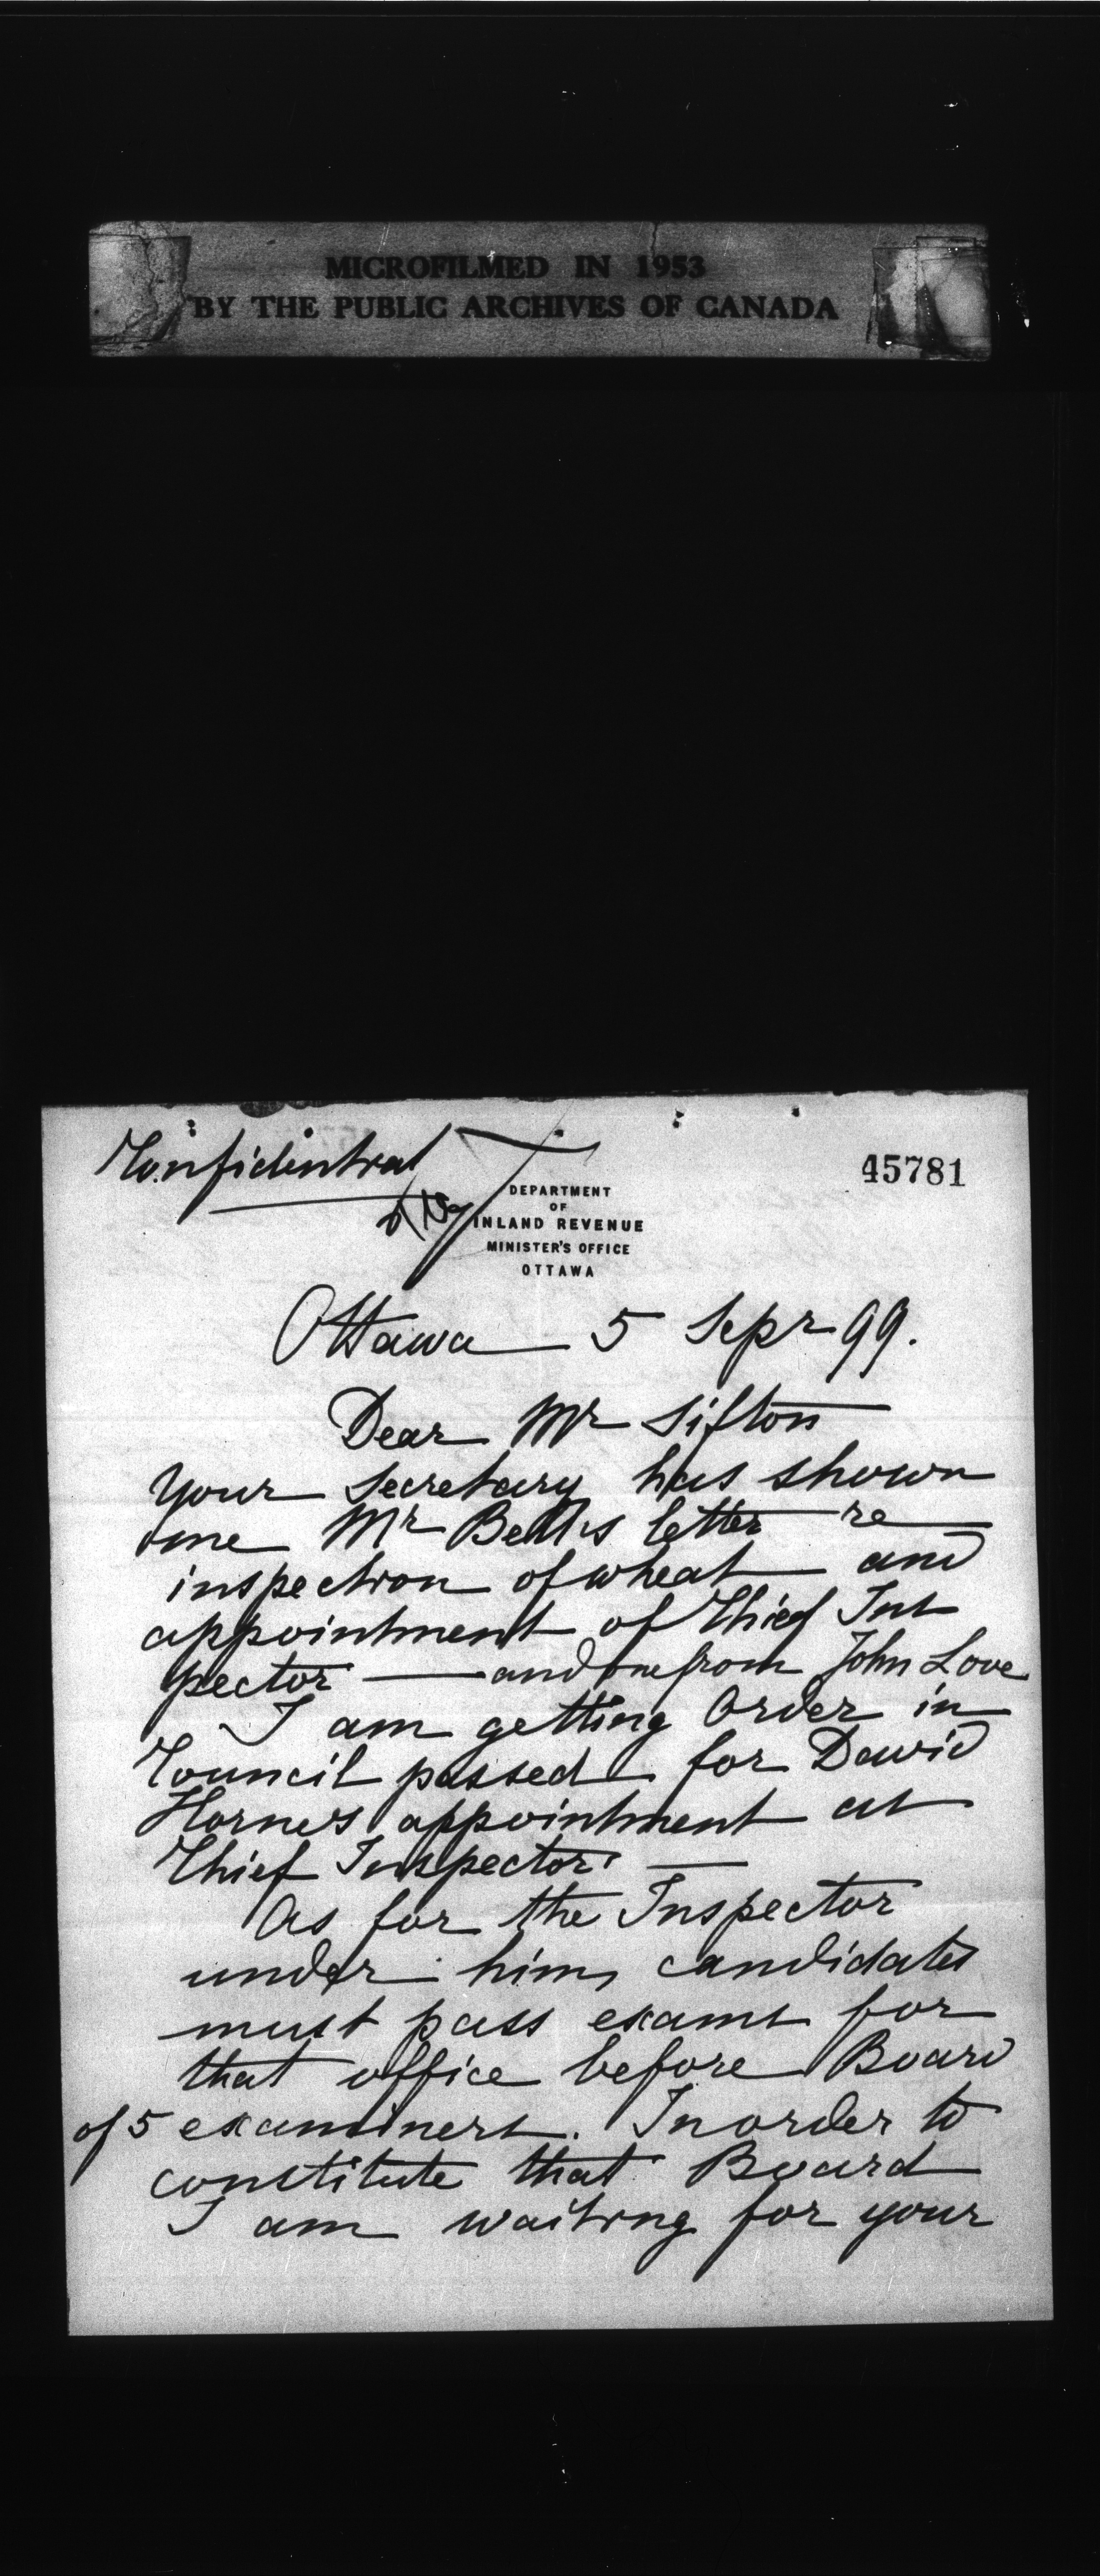 MICROFILMED IN 1953
BY THE PUBLIC ARCHIVES OF CANADA
Confidential
45781
DEPARTMENT
OF
INLAND REVENUE
MINISTER'S OFFICE
OTTAWA
Ottawa 5 Sepr 99.
Dear Mr Sifton
Your Secretary has shown
me Mr Bettis letter re
inspection of wheat and
appointment of Chief Ins
pector — and one from John Love
I am getting Order in
Council passed for David
Horne's appointment as
Chief Inspector —
As for the Inspector
under him, candidates
must pass exams for
that office before Board
of 5 examiners. In order to
constitute that Board
I am waiting for your